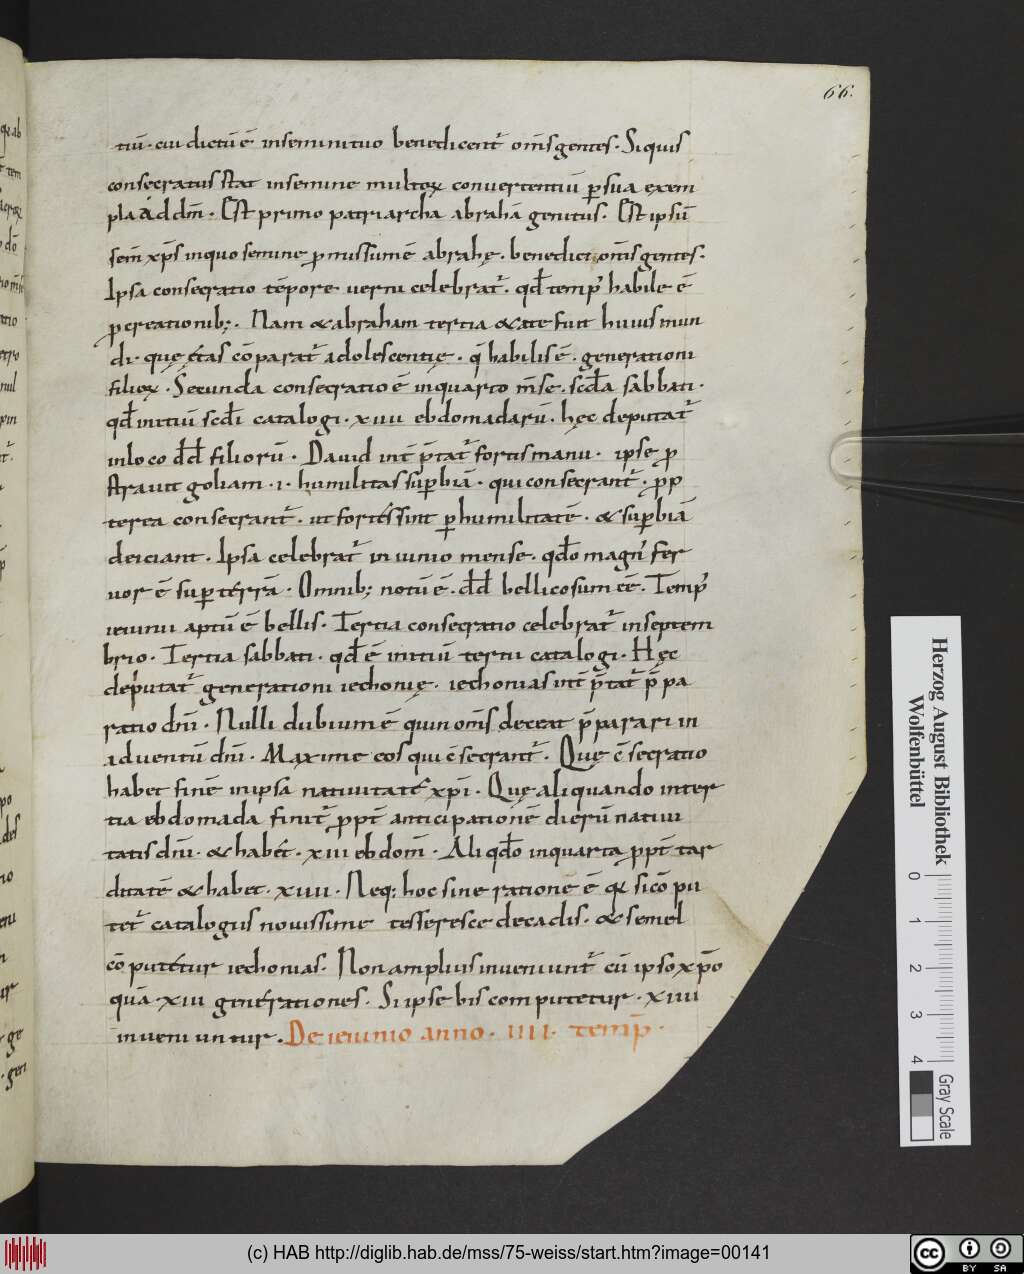 66.
tiū· cui dictū ē inseminituo benedicent᷑ om̄s gentes· Siquis
consecratus stat insemine multoꝝ convertentiū ꝑsua exem
pla Ad dm̄· Est primo patriarcha abrahā genitus· Est ipsū
sem̄ xp̄s inquo semine ꝓmissum ē abrahę· benedici om̄s gentes·
Ipsa consecratio tēpore verni celebrat᷑· qd̄ temp᷒ habile ē
ꝓcreationib;· Nam & abraham tertia &ate fuit huius mun
di· quę ętas cōparat᷑ adolescentię· q̄ habilis ē· generationi
filioꝝ· Secunda consecratio ē inquarto m̄se· scd̄a sabbati·
qd̄ initiū scd̄i catalogi· xiiii ebdomadarū· hęc deputat᷑
inloco dd̄ filiorū· David int̄ p̄tat᷑ fortis manu· ipse ꝓ
stravit goliam· i· humilitas suꝑbiā· qui consecrant᷑· ꝓp
terea consecrant᷑· ut fortes sint ꝑ humilitatē· & suꝑbiā
deiciant· Ipsa celebrat᷑ in iunio mense· qd̄o magn᷒ fer
vor ē suꝑ terrā· Omnib; notū ē· dd̄ bellicosum eē· Temp᷒
ieiunii aptū ē bellis· Tertia consecratio celebrat᷑ inseptem
brio· Tertia sabbati· qd̄ ē initiū tertii catalogi· Hęc
deputat᷑ generationi iechonię· iechonias int̄ p̄tat᷑ p̄pa
ratio dn̄i· Nulli dubium ē quin om̄s deceat p̄parari in
adventū dn̄i· Maxime eos qui c̄secrant᷑· Quę c̄secratio
habet finē in ipsa nativitatē xp̄i· Quę aliquando inter
tia ebdomada finit᷑ ꝓpt̄ anticipationē dierū nativi
tatis dn̄i· & habet· xiii ebdom̄· Aliqd̄o inquarta ꝓpt̄ tar
ditatē & habet· xiiii· Neq; hoc sine ratione ē qa sicō pu
tet᷑ catalogus novissime tesseresce decadis· & semel
cōputetur iechonias· Non amplius inveniunt᷑ cū ipso xp̄o
quā· xiii generationes· Si ipse bis computetur· xiiii
inveniuntur· De ieiunio anno· IIII· temp̄·
Herzog August Bibliothek
Wolfenbüttel
0 1 2 3 4 Gray Scale
(c) HAB http://diglib.hab.de/mss/75-weiss/start.htm?image=00141
cc BY SA